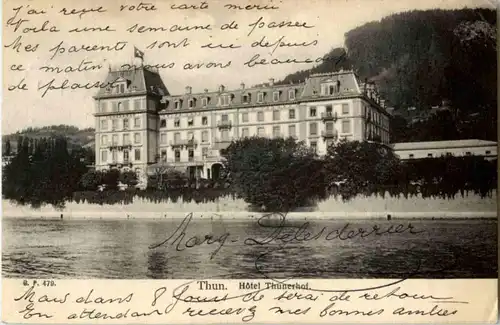 J'ai reçu votre carte merci
Voilà une semaine de passee
Mes parents sont ici depuis
ce matin nous avons beaucoup
de plaisir
Marg. Delesderrier
G. P. 479.
Thun. Hôtel Thunerhof.
Mais dans 8 jours je serai de retour
En attendant recevez mes bonnes amitiés